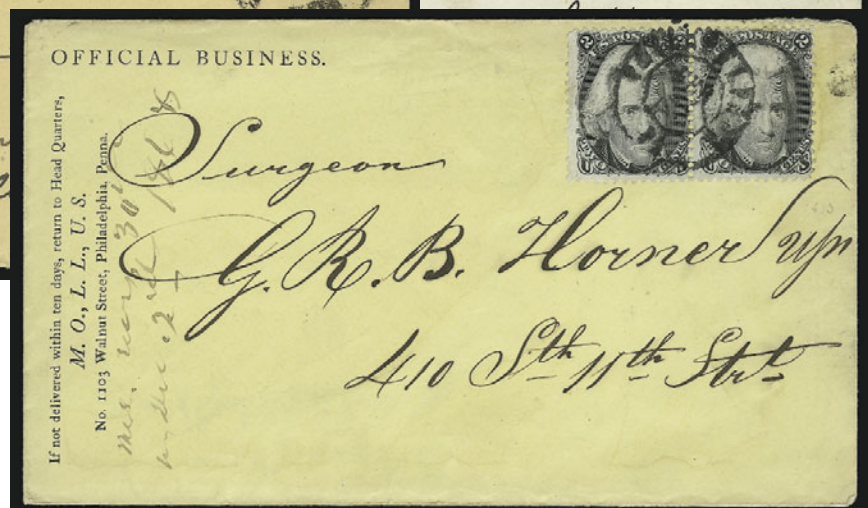 OFFICIAL BUSINESS.
If not delivered within ten days, return to Head Quarters,
M. O., L. L., U. S.
No. 1103 Walnut Street, Philadelphia, Penna.
Surgeon
G. R. B. Horner
410 Sth 11th Strt